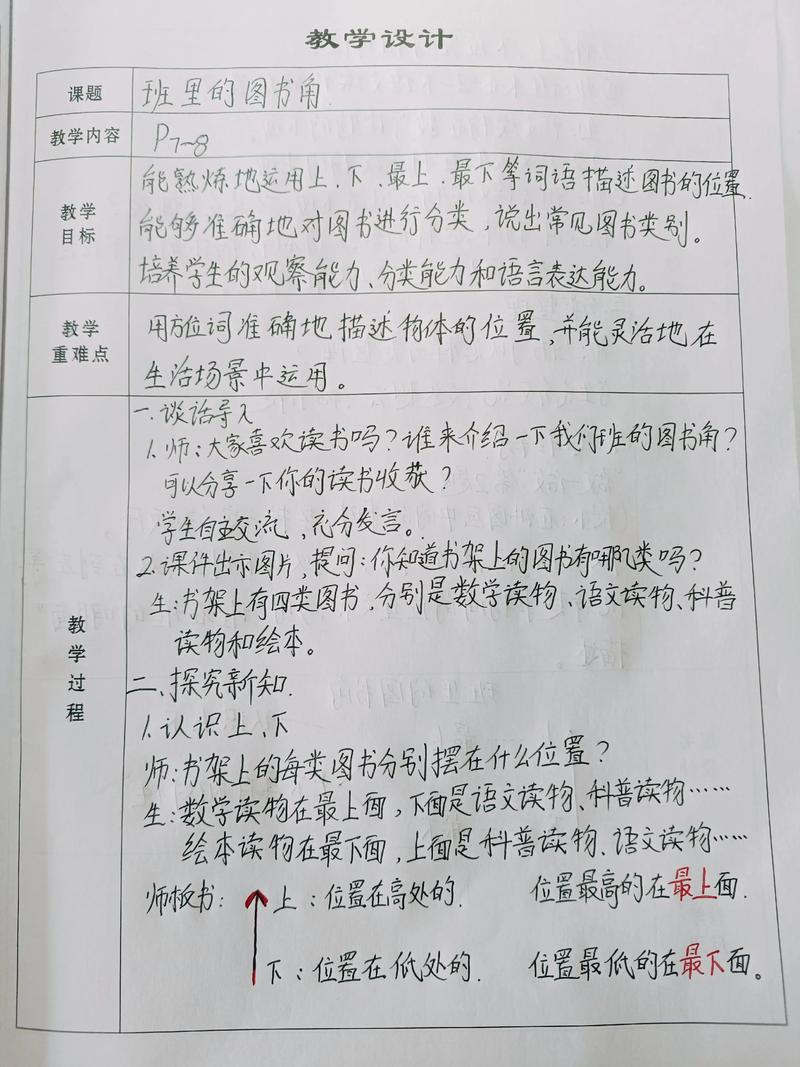 教学设计
课题 班里的图书角.
教学内容 P7~8
能熟炼地运用上、下、最上、最下等词语描述图书的位置.
教学目标 能够准确地对图书进行分类，说出常见图书类别。
培养学生的观察能力、分类能力和语言表达能力。
教学重难点 用方位词准确地描述物体的位置，并能灵活地在
生活场景中运用。
教学过程
一.谈话导入
1.师：大家喜欢读书吗？谁来介绍一下我们班的图书角？
可以分享一下你的读书收获？
学生自主交流，充分发言。
2.课件出示图片，提问：你知道书架上的图书有哪几类吗？
生：书架上有四类图书，分别是数学读物、语文读物、科普
读物和绘本。
二、探究新知.
1.认识上、下
师：书架上的每类图书分别摆在什么位置？
生：数学读物在最上面，下面是语文读物、科普读物……
绘本读物在最下面，上面是科普读物、语文读物……
师板书： 上：位置在高处的. 位置最高的在最上面.
下：位置在低处的. 位置最低的在最下面。